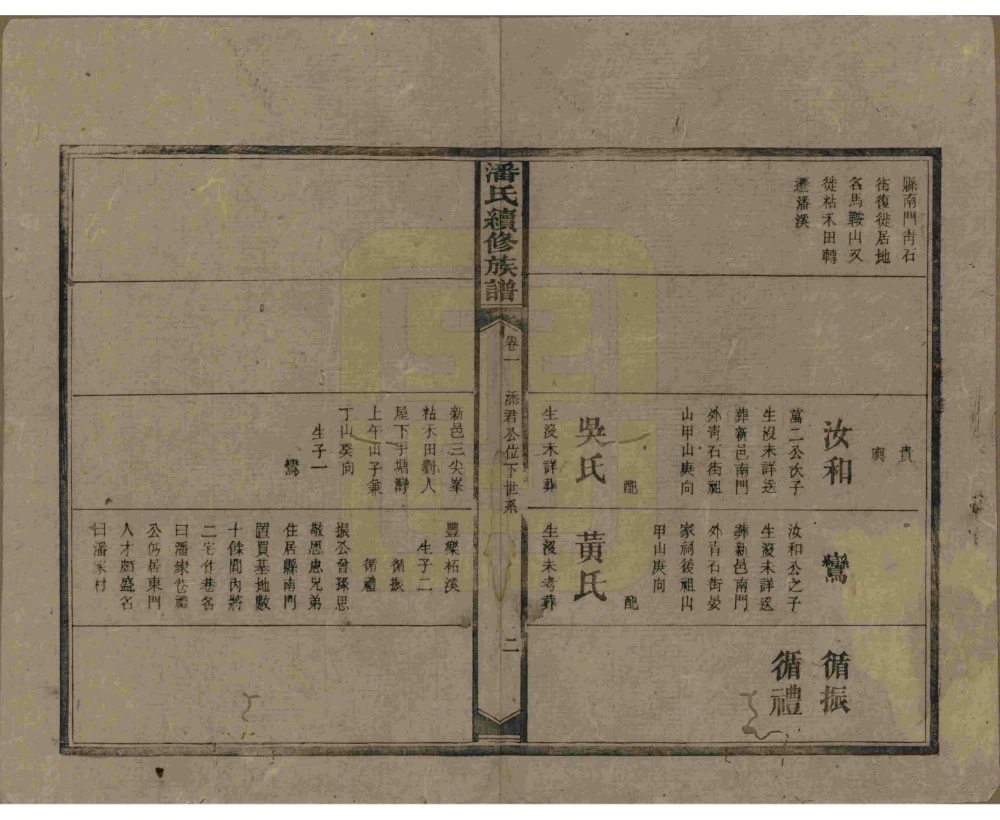 縣南門青石
街復徙居地
名馬鞍山又
徙枯禾田轉
遷潘溪
貴
興
汝和
萬二公次子
生沒未詳送
葬新邑南門
外靑石街祖
山甲山庚向
配
吳氏
生沒未詳葬
鸞
汝和公之子
生沒未詳送
葬新邑南門
外青石街晏
家祠後祖山
甲山庚向
配
黃氏
生沒未考葬
循振
循禮
潘氏續修族譜
卷一
公位下世系
二
新邑三尖峯
枯禾田劉人
屋下手塘灣
上午山子兼
丁山癸向
生子一
鸞
豐樂柘溪
生子二
循振
循禮
振公曾孫思
敬思忠兄弟
住居縣南門
置買基地數
十餘間內將
二宅作巷名
曰潘家巷禮
公仍居東門
人才頗盛名
曰潘家村